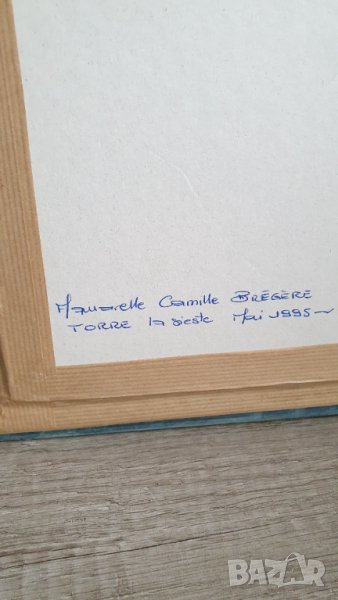 Aquarelle Camille BRÉGÈRE
TORRE la sieste Mai 1995
BAZAR